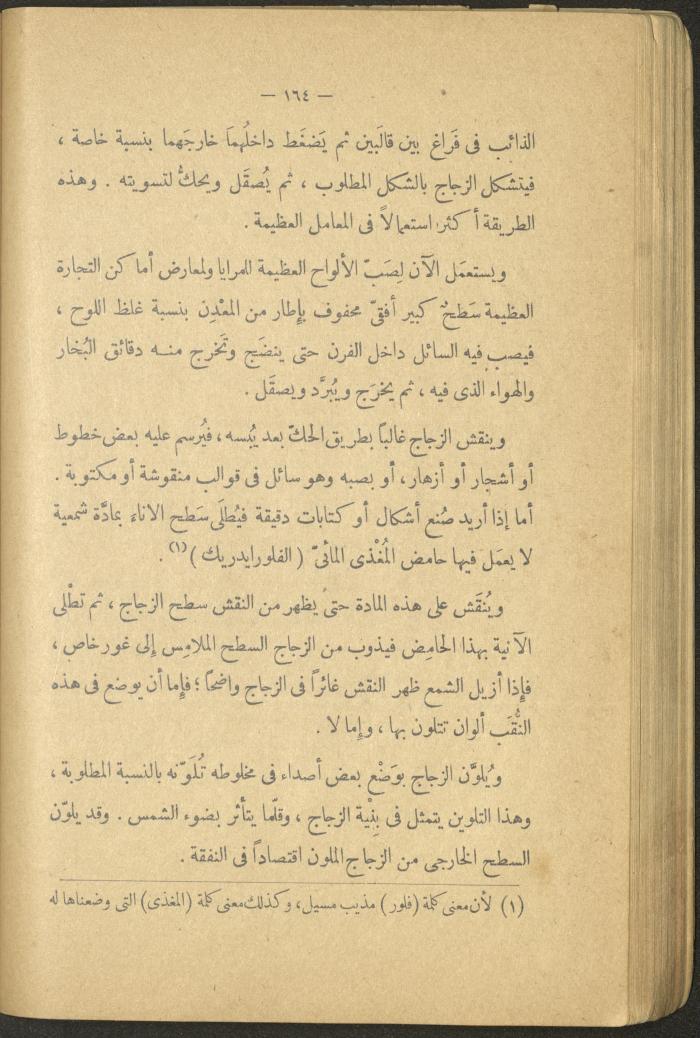 — ١٦٤ —
الذائب فى فَراغ بين قالَبين ثم يَضغَط داخلُهما خارجَهما بنسبة خاصة ،
فيتشكل الزجاج بالشكل المطلوب ، ثم يُصقَل ويحكُّ لتسويته . وهذه
الطريقة أكثر استعمالاً فى المعامل العظيمة .
ويستعمَل الآن لِصَبّ الألواح العظيمة للمرايا ولمعارض أماكن التجارة
العظيمة سَطحٌ كبير أفقىّ محفوف بإطار من المعْدِن بنسبة غلظ اللوح ،
فيصب فيه السائل داخل الفرن حتى ينضَج وتَخرج منه دقائق البُخار
والهواء الذى فيه ، ثم يخرَج ويُبرَّد ويصقَل .
وينقش الزجاج غالباً بطريق الحكّ بعد يُبسه ، فيُرسم عليه بعض خطوط
أو أشجار أو أزهار ، أو بصبه وهو سائل فى قوالب منقوشة أو مكتوبة .
أما إذا أريد صُنع أشكال أو كتابات دقيقة فيُطلَى سَطح الاناء بمادَّة شمعية
لا يعمَل فيها حامض المُغْذى المائىّ ( الفلورايدريك ) (١) .
ويُنقَش على هذه المادة حتى يظهر من النقش سطح الزجاج ، ثم تطْلى
الآنية بهذا الحامِض فيذوب من الزجاج السطح الملامِس إلى غور خاص ،
فإذا أزيل الشمع ظهر النقش غائراً فى الزجاج واضحاً ؛ فإما أن يوضع فى هذه
النُّقَب ألوان تتلون بها ، وإما لا .
ويُلوَّن الزجاج بوَضْع بعض أصداء فى مخلوطه تُلَوّنه بالنسبة المطلوبة ،
وهذا التلوين يتمثل فى بِنْية الزجاج ، وقلّما يتأثر بضوء الشمس . وقد يلوّن
السطح الخارجى من الزجاج الملون اقتصاداً فى النفقة .
(١) لأن معنى كلمة (فلور) مذيب مسيل، وكذلك معنى كلمة (المغذى) التى وضعناها له